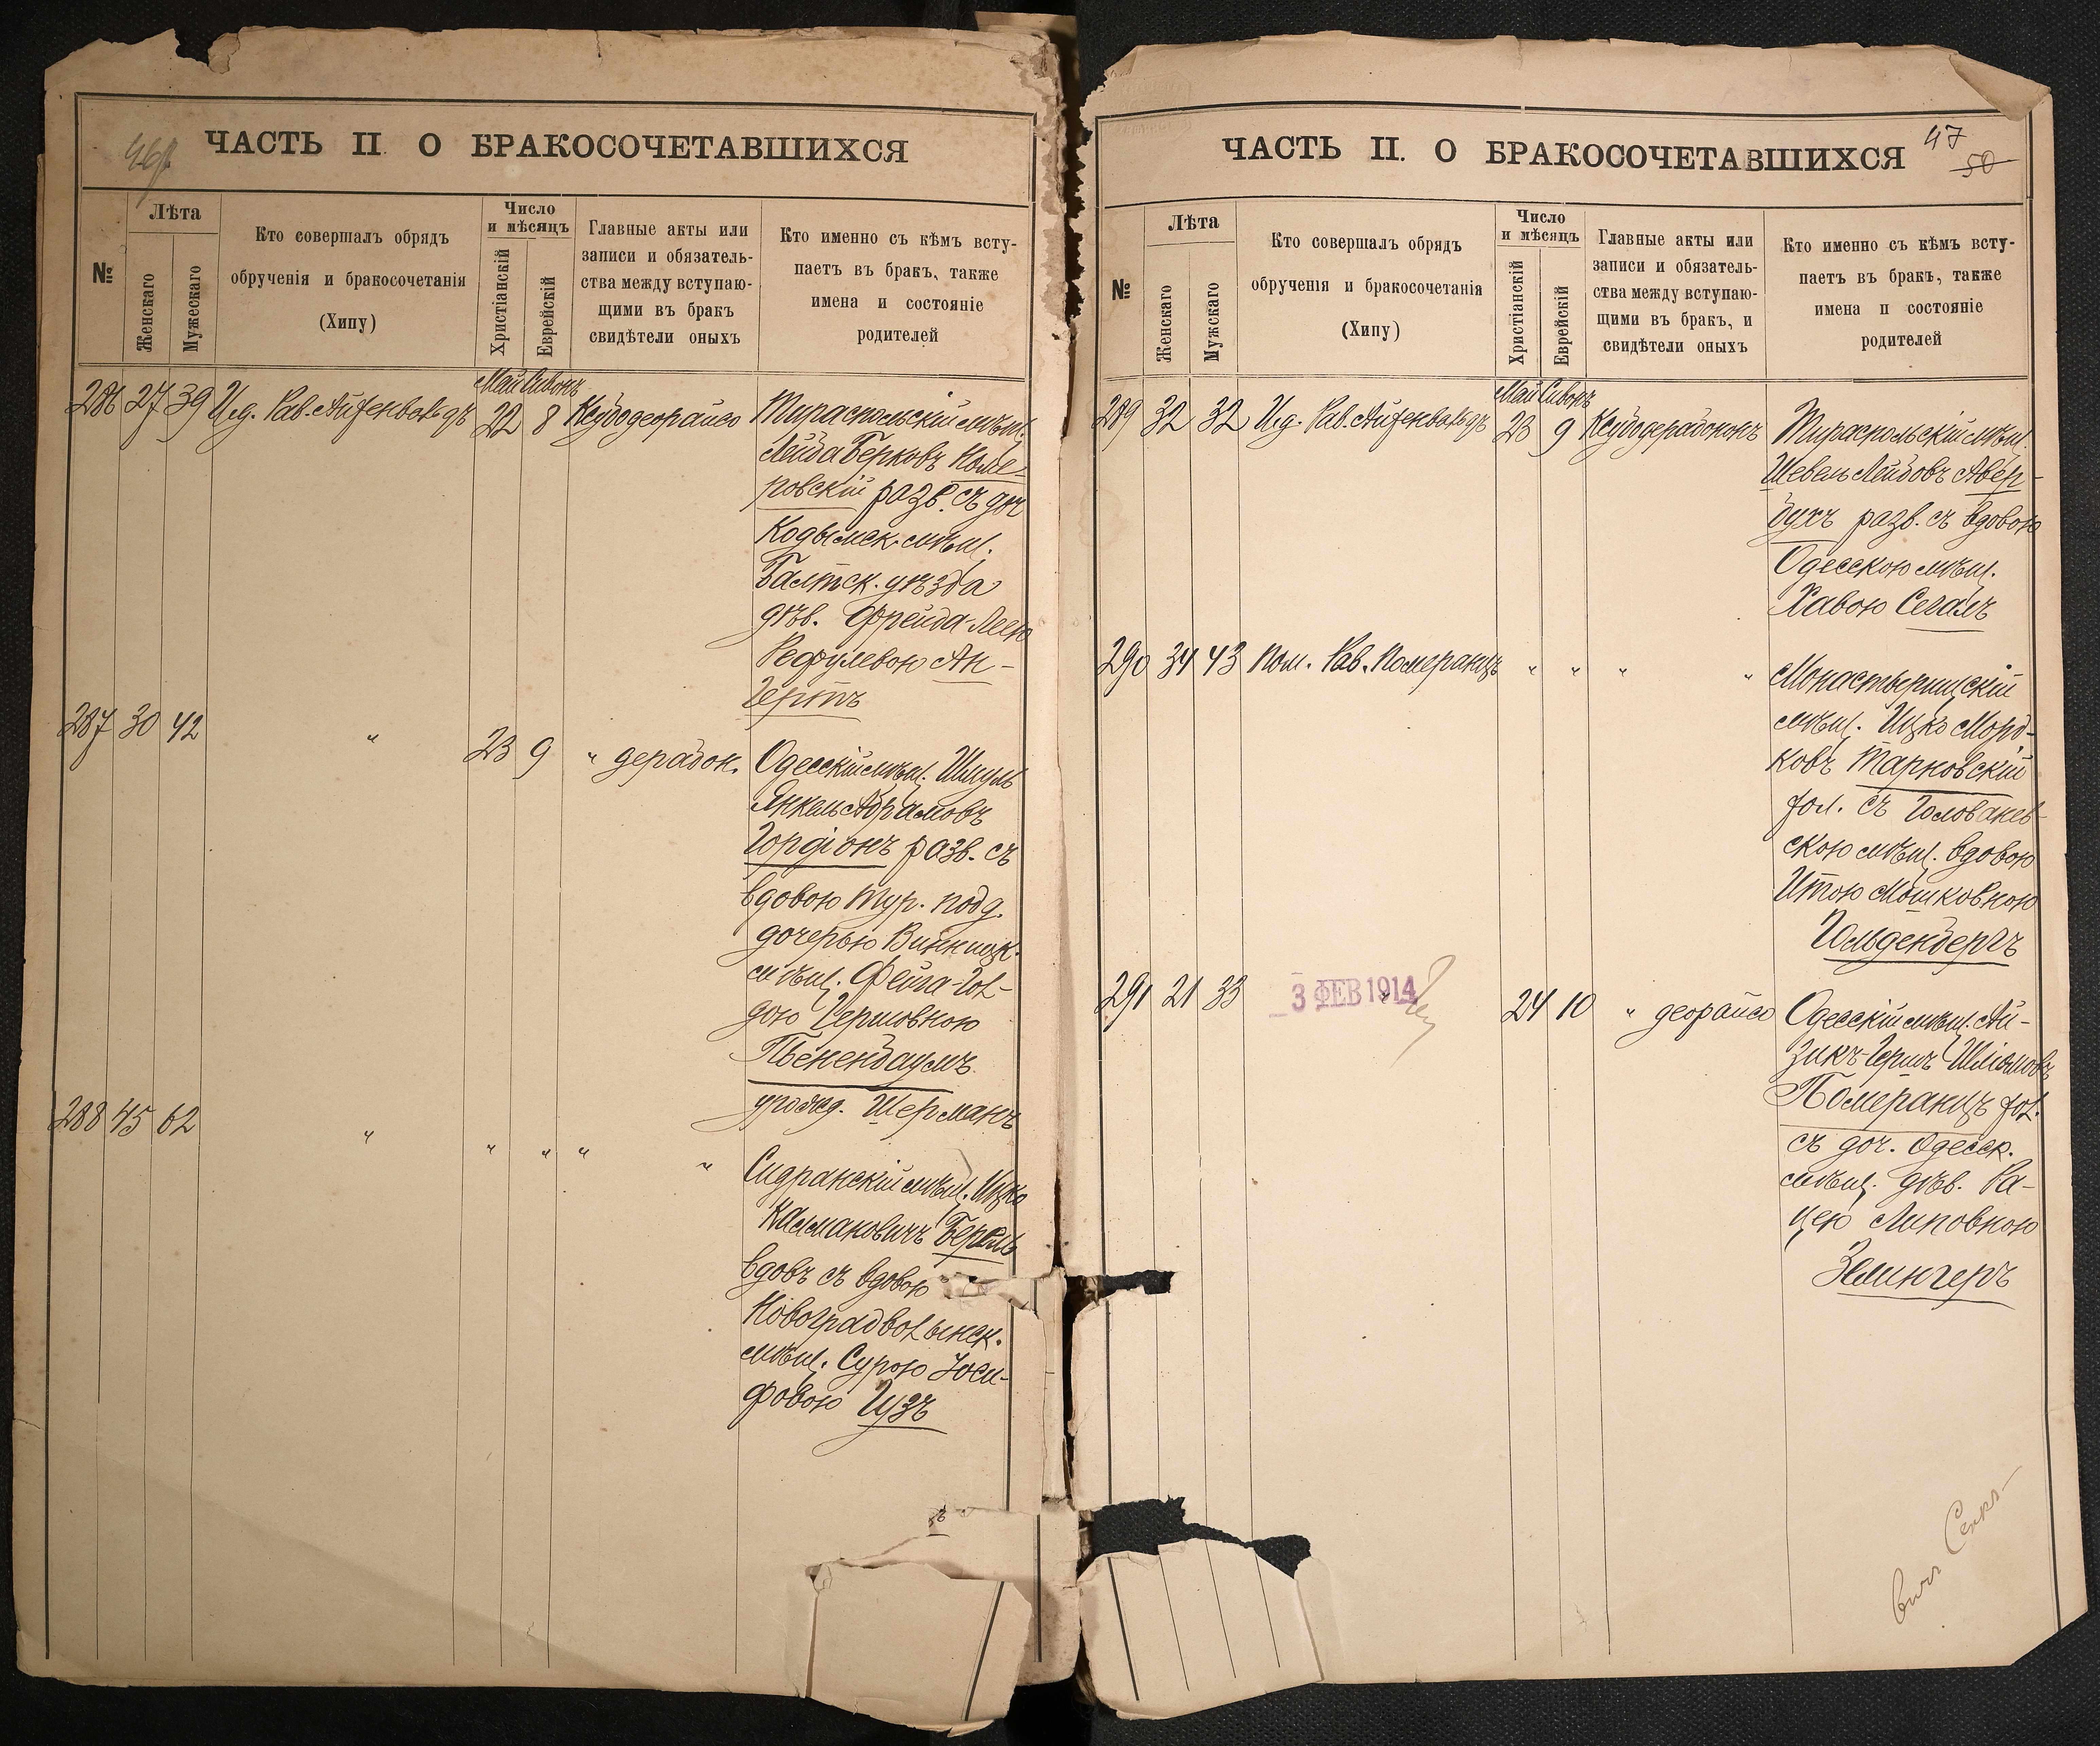 46
ЧАСТЬ II О БРАКОСОЧЕТАВШИХСЯ
№
Лѣта
Женскаго
Мужескаго
Кто совершалъ обрядъ
обрученія и бракосочетанія
(Хипу)
Число
и мѣсяцъ
Христіанскій
Еврейскій
Главные акты или
записи и обязатель-
ства между вступаю-
щими въ бракъ
свидѣтели оныхъ
Кто именно съ кѣмъ всту-
паетъ въ бракъ, также
имена и состояніе
родителей
Май Сивонъ
286 27 39 И.д. Рав. Айзенвальдъ 22 8 Ксубодеорайсо Тираспольскій мѣщ.
Лейба Берковъ Коме-
ровскій разв. съ доч
Кодымск. мѣщ.
Балтск. уѣзда
дѣв. Фрейда-Леею
Рефулевою Ан-
гертъ
287 30 42 " 23 9 " дерабон. Одесскій мѣщ. Шмуль
Янкель Абрамовъ
Гордіонъ разв. съ
вдовою тур. подд.
дочерью Винницк.
мѣщ. Фейга-Гол-
дою Гершовною
Тененбаумъ
урожд. Шерманъ
288 45 62 " " " " " мѣщ. Ицко
Калмановичъ Берель
вдовъ съ вдовою
Новоградволынск.
мѣщ. Сурою Іоси-
фовою Гузъ
47
50
ЧАСТЬ II. О БРАКОСОЧЕТАВШИХСЯ
№
Лѣта
Женскаго
Мужскаго
Кто совершалъ обрядъ
обрученія и бракосочетанія
(Хипу)
Число
и мѣсяцъ
Христіанскій
Еврейскій
Главные акты или
записи и обязатель-
ства между вступаю-
щими въ бракъ, и
свидѣтели оныхъ
Кто именно съ кѣмъ всту-
паетъ въ бракъ, также
имена и состояніе
родителей
Май Сивонъ
289 32 32 И.д. Рав. Айзенвальдъ 23 9 Ксубодерабононъ Тираспольскій мѣщ.
Шевель Лейбовъ Авер-
бухъ разв. съ вдовою
Одесскою мѣщ.
Хавою Сегалъ
290 34 43 Пом. Рав. Померанцъ " " " " Монастырищскій
мѣщ. Ицко Морд-
ковъ Тарновскій
хол. съ Голованев-
скою мѣщ. вдовою
Итою Мошковною
Гольденбергъ
291 21 33 " 24 10 " деорайсо Одесскій мѣщ. Ай-
зикъ-Гершъ Шліомовъ
Померанцъ хол.
съ доч. Одесск.
мѣщ. дѣв. Ра-
цею Липовною
Зелингеръ
3 ФЕВ 1914